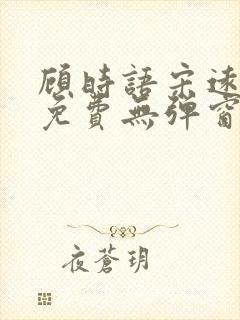 顧時語宋遠
免費無彈窗
夜蒼玥